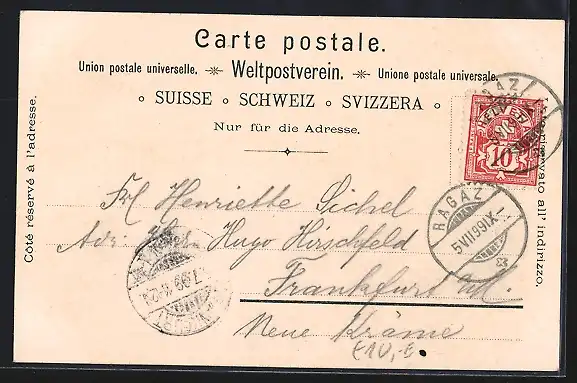 Carte postale.
Union postale universelle. Weltpostverein. Unione postale universale.
SUISSE SCHWEIZ SVIZZERA
Nur für die Adresse.
Côté réservé à l'adresse.
all' indirizzo.
RAGAZ
HELVETIA
10
RAGAZ
5 VII 99 IX
Frl Henriette Sichel
Adr. Hugo Hirschfeld
Frankfurt a/M.
Neue Kräme